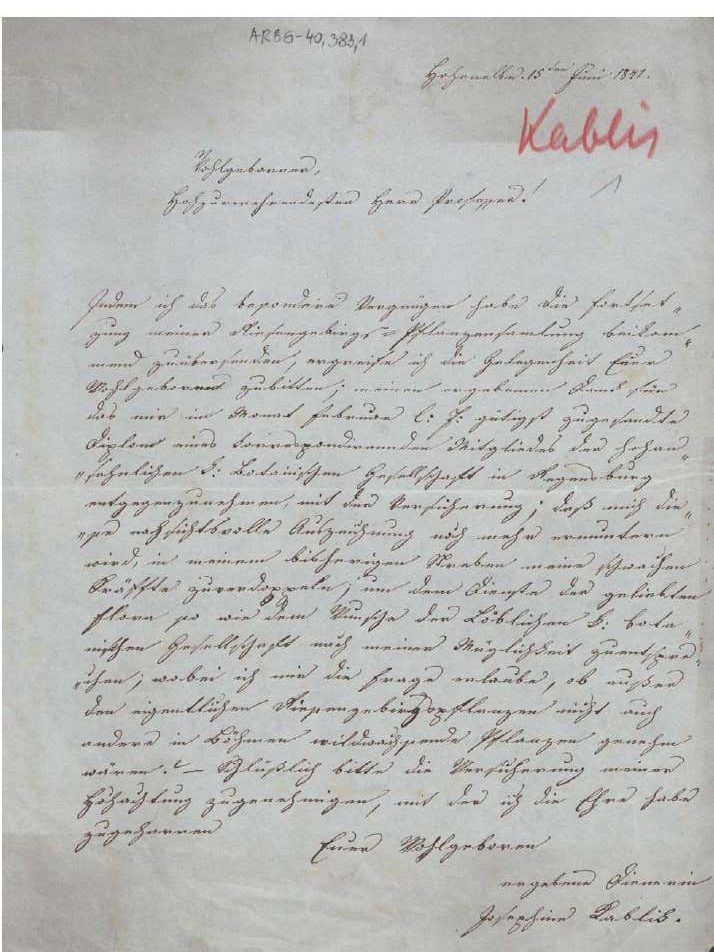 ARBG-40,383,1
Hohenelbe. 15ten Juni 1841.
Kablik
1
Wohlgeborner,
Hochzuverehrendester Herr Professer!
Indem ich das besondere Vergnügen habe die Fortset„
zung meiner Riesengebirgs=Pflanzensamlung beikom„
mend zuübersenden, ergreife ich die Gelegenheit Euer
Wohlgeboren zubitten; meinen ergebenen Dank für
das mir im Monat Februar l: J: gütigst zugesandte
Diplom eines Correspondirennden Mitgliedes der hohan„
„sehnlichen k: Botanischen Gesellschaft in Regensburg
entgegenzunehmen, mit der Versicherung; daß mich die„
„se nachsichtsvolle Auszeichnung noch mehr ermuntern
wird, in meinem bisherigen Streben meine schwachen
Kräffte zuverdoppeln; um dem Dienste der geliebten
Flora so wie dem Wunsche der Löblichen k: bota„
nischen Gesellschaft nach meiner Möglichkeit zuentspre„
„chen; wobei ich mir die Frage erlaube, ob außer
den eigentlichen Riesengebirgspflanzen nicht auch
andere in Böhmen wildwachsende Pflanzen genehm
wären? — Schlüßlich bitte die Versicherung meiner
Hochachtung zugenehmigen, mit der ich die Ehre habe
zugeharren
Euer Wohlgeboren
ergebene Dienerin
Josephine Kablik.